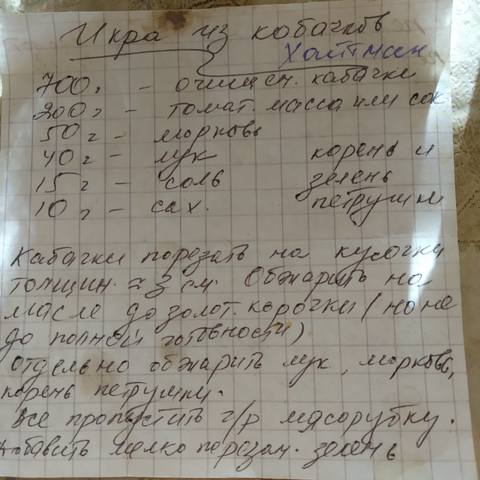 Икра из кабачков
Хайтман
700г – очищен. кабачки
200г – томат. масса или сок
50г – морковь
40г – лук корень и
15г – соль зелень
10г – сах. петрушки
Кабачки порезать на кусочки
толщин. ≈ 3 см. Обжарить на
масле до золот. корочки (но не
до полной готовности)
Отдельно обжарить лук, морковь,
корень петрушки.
Все пропустить ч/р мясорубку.
Добавить мелко порезан. зелень